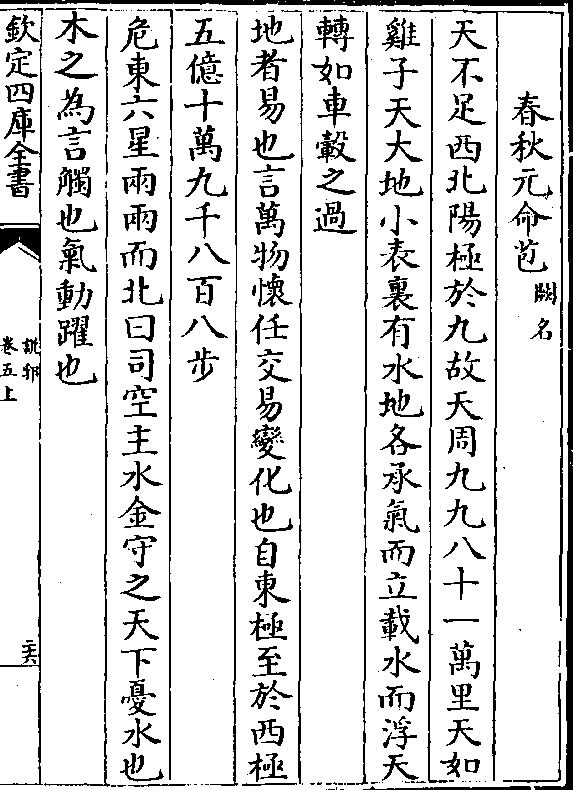 春秋元命苞闕名
天不足西北陽極於九故天周九九八十一萬里天如
雞子天大地小表裏有水地各承氣而立載水而浮天
轉如車轂之過
地者易也言萬物懷任交易變化也自東極至於西極
五億十萬九千八百八步
危東六星兩兩而北曰司空主水金守之天下憂水也
木之為言觸也氣動躍也
欽定四庫全書
說郛
卷五上
二六